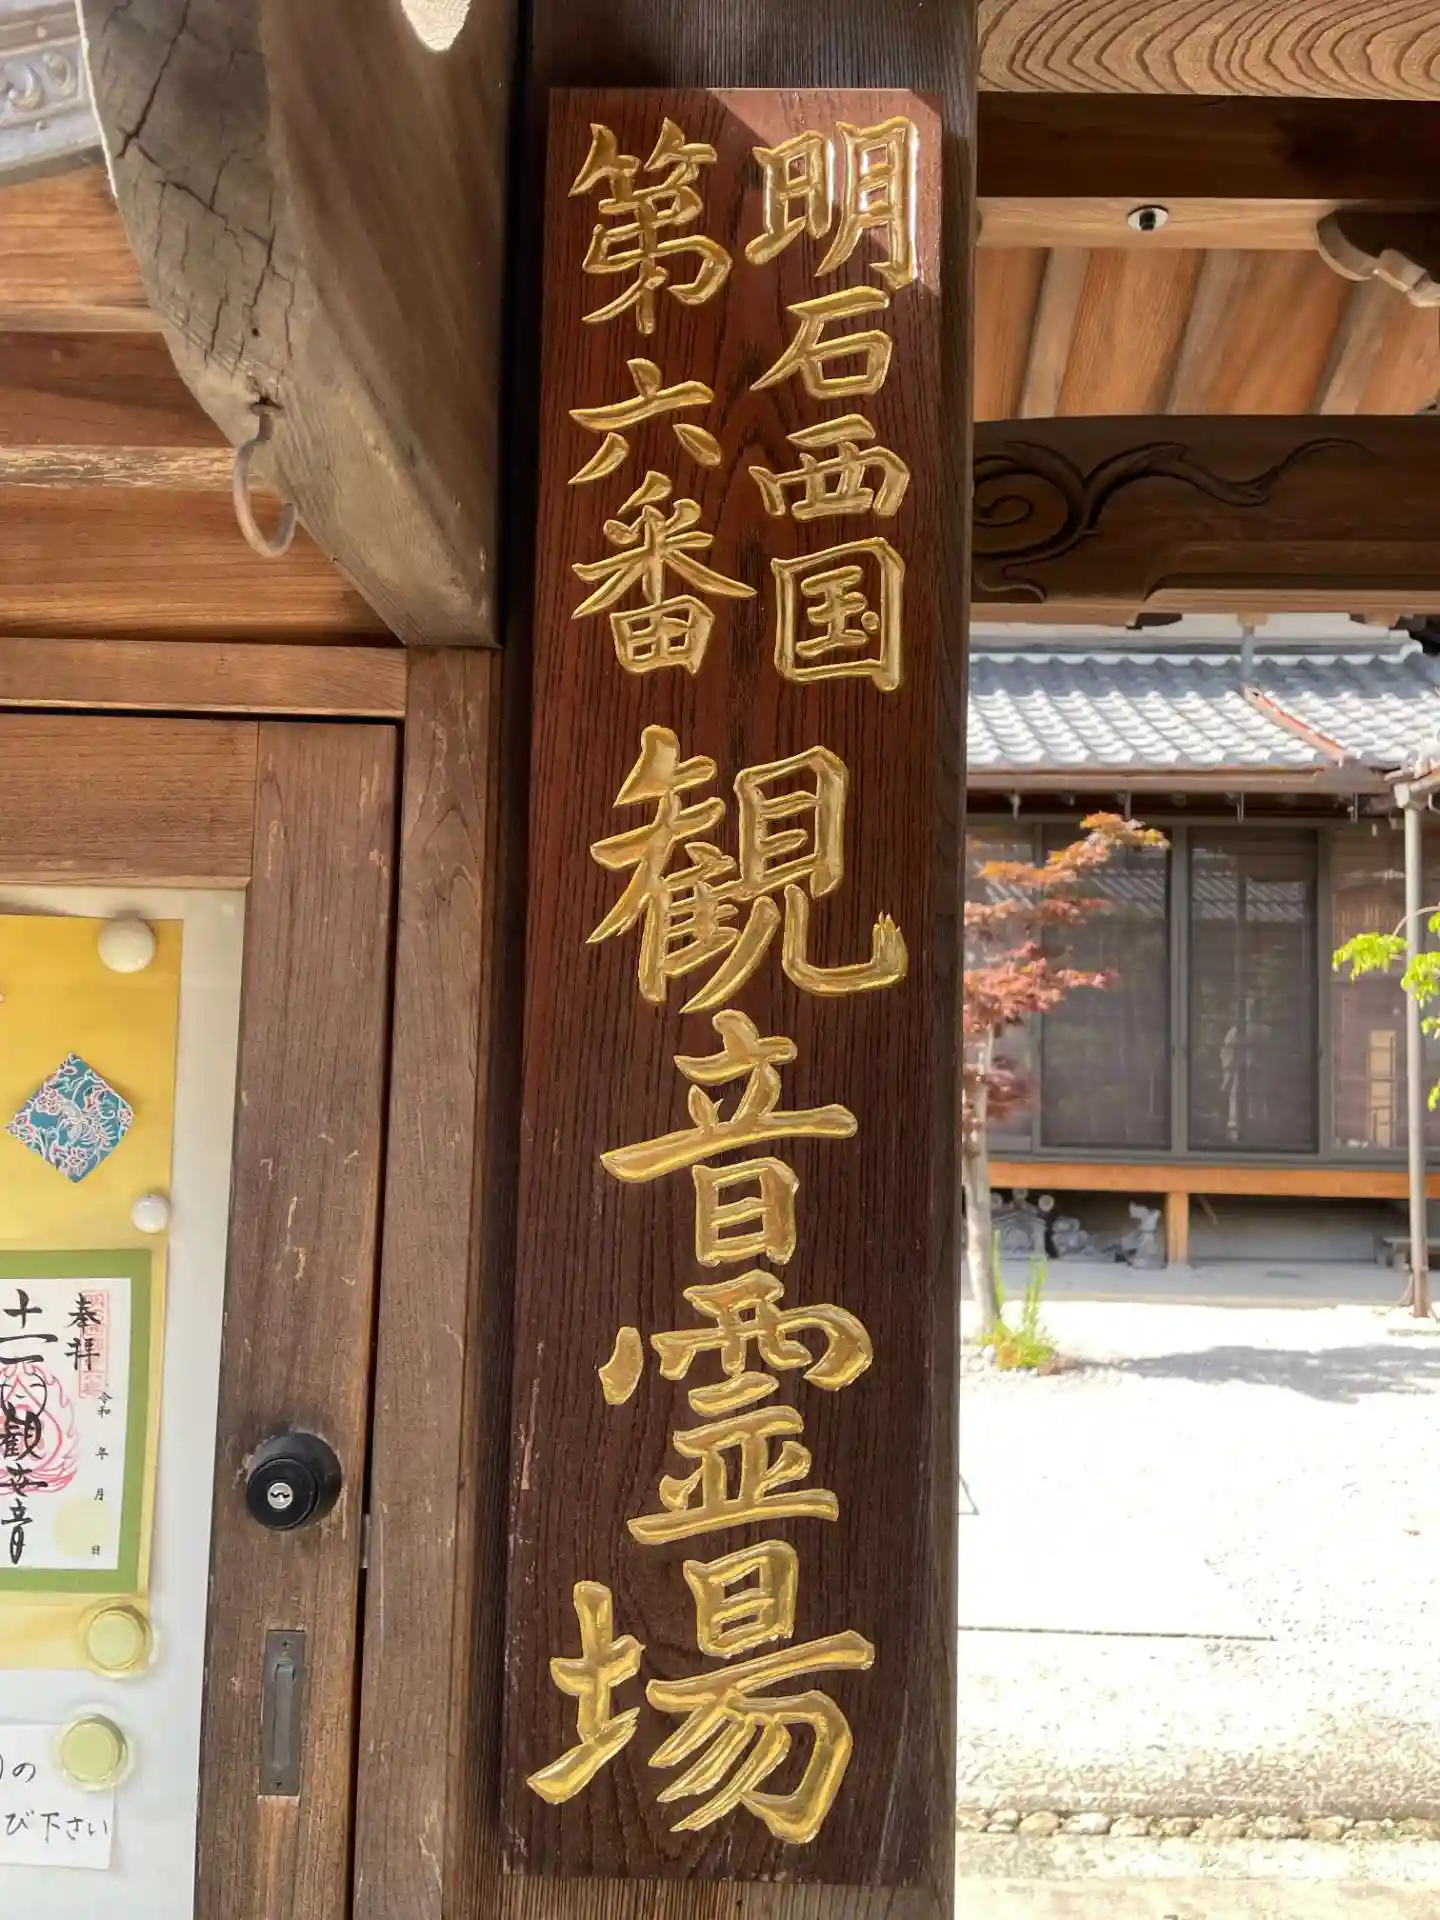 明石西国
第六番
観音霊場
奉拝
十一面観世音
令和 年 月 日
の
び下さい